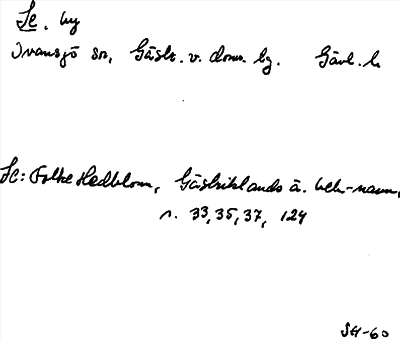 Se. by
Ovansjö sn, Gästr. v. doms. bg. Gävl. l.
Se: Folke Hedblom, Gästriklands ä. beb-namn,
s. 33, 35, 37, 124
SH-60